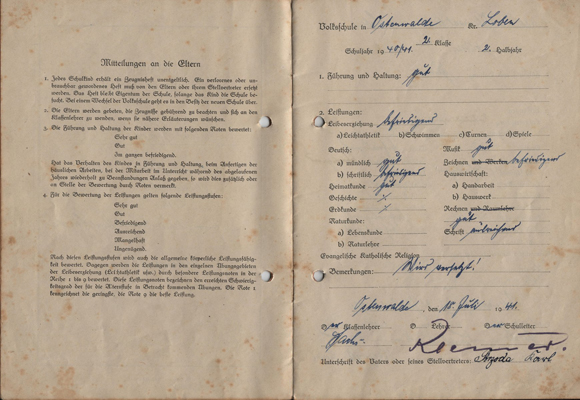 Mitteilungen an die Eltern
1. Jedes Schulkind erhält ein Zeugnisheft unentgeltlich. Ein verlorenes oder unbrauchbar gewordenes Heft muß von den Eltern oder ihren Stellvertreter ersetzt werden. Das Heft bleibt Eigentum der Schule, solange das Kind die Schule besucht. Bei einem Wechsel der Volksschule geht es in den Besitz der neuen Schule über.
2. Die Eltern werden gebeten, die Zeugnisse gebührend zu beachten und sich an den Klassenlehrer zu wenden, wenn sie nähere Erläuterungen wünschen.
3. Die Führung und Haltung der Kinder werden mit folgenden Noten bewertet:
Sehr gut
Gut
Im ganzen befriedigend.
Hat das Verhalten des Kindes in Führung und Haltung, beim Anfertigen der häuslichen Arbeiten, bei der Mitarbeit im Unterricht während des abgelaufenen Jahres wiederholt zu Beanstandungen Anlaß gegeben, so wird dies zusätzlich oder an Stelle der Bewertung durch Noten vermerkt.
4. Für die Bewertung der Leistungen gelten folgende Leistungsstufen:
Sehr gut
Gut
Befriedigend
Ausreichend
Mangelhaft
Ungenügend.
Nach diesen Leistungsstufen wird auch die allgemeine körperliche Leistungsfähigkeit bewertet. Dagegen werden die Leistungen in den einzelnen Übungsgebieten der Leibeserziehung (Leichtathletik usw.) durch besondere Leistungsnoten in der Reihe 1 bis 9 bewertet. Diese Leistungsnoten bezeichnen den erreichten Schwierigkeitsgrad der für die Altersstufe in Betracht kommenden Übungen. Die Note 1 kennzeichnet die geringste, die Note 9 die beste Leistung.
Volksschule in Ostenwalde Kr. Loben
Schuljahr 1940/41 2. Klasse 2. Halbjahr
1. Führung und Haltung: gut
2. Leistungen:
Leibeserziehung befriedigend
a) Leichtathletik b) Schwimmen c) Turnen d) Spiele
Deutsch: Musik gut
a) mündlich gut Zeichnen und Werken befriedigend
b) schriftlich befriedigend Hauswirtschaft:
Heimatkunde gut a) Handarbeit
Geschichte x b) Hauswerk
Erdkunde x Rechnen und Raumlehre gut
Naturkunde:
a) Lebenskunde Schrift
b) Naturlehre
Evangelische Katholische Religion
Bemerkungen: Wird versetzt!
Ostenwalde, den 18. Juli 1941.
Der Klassenlehrer Lehrer Der Schulleiter
Unterschrift des Vaters oder seines Stellvertreters: Karl